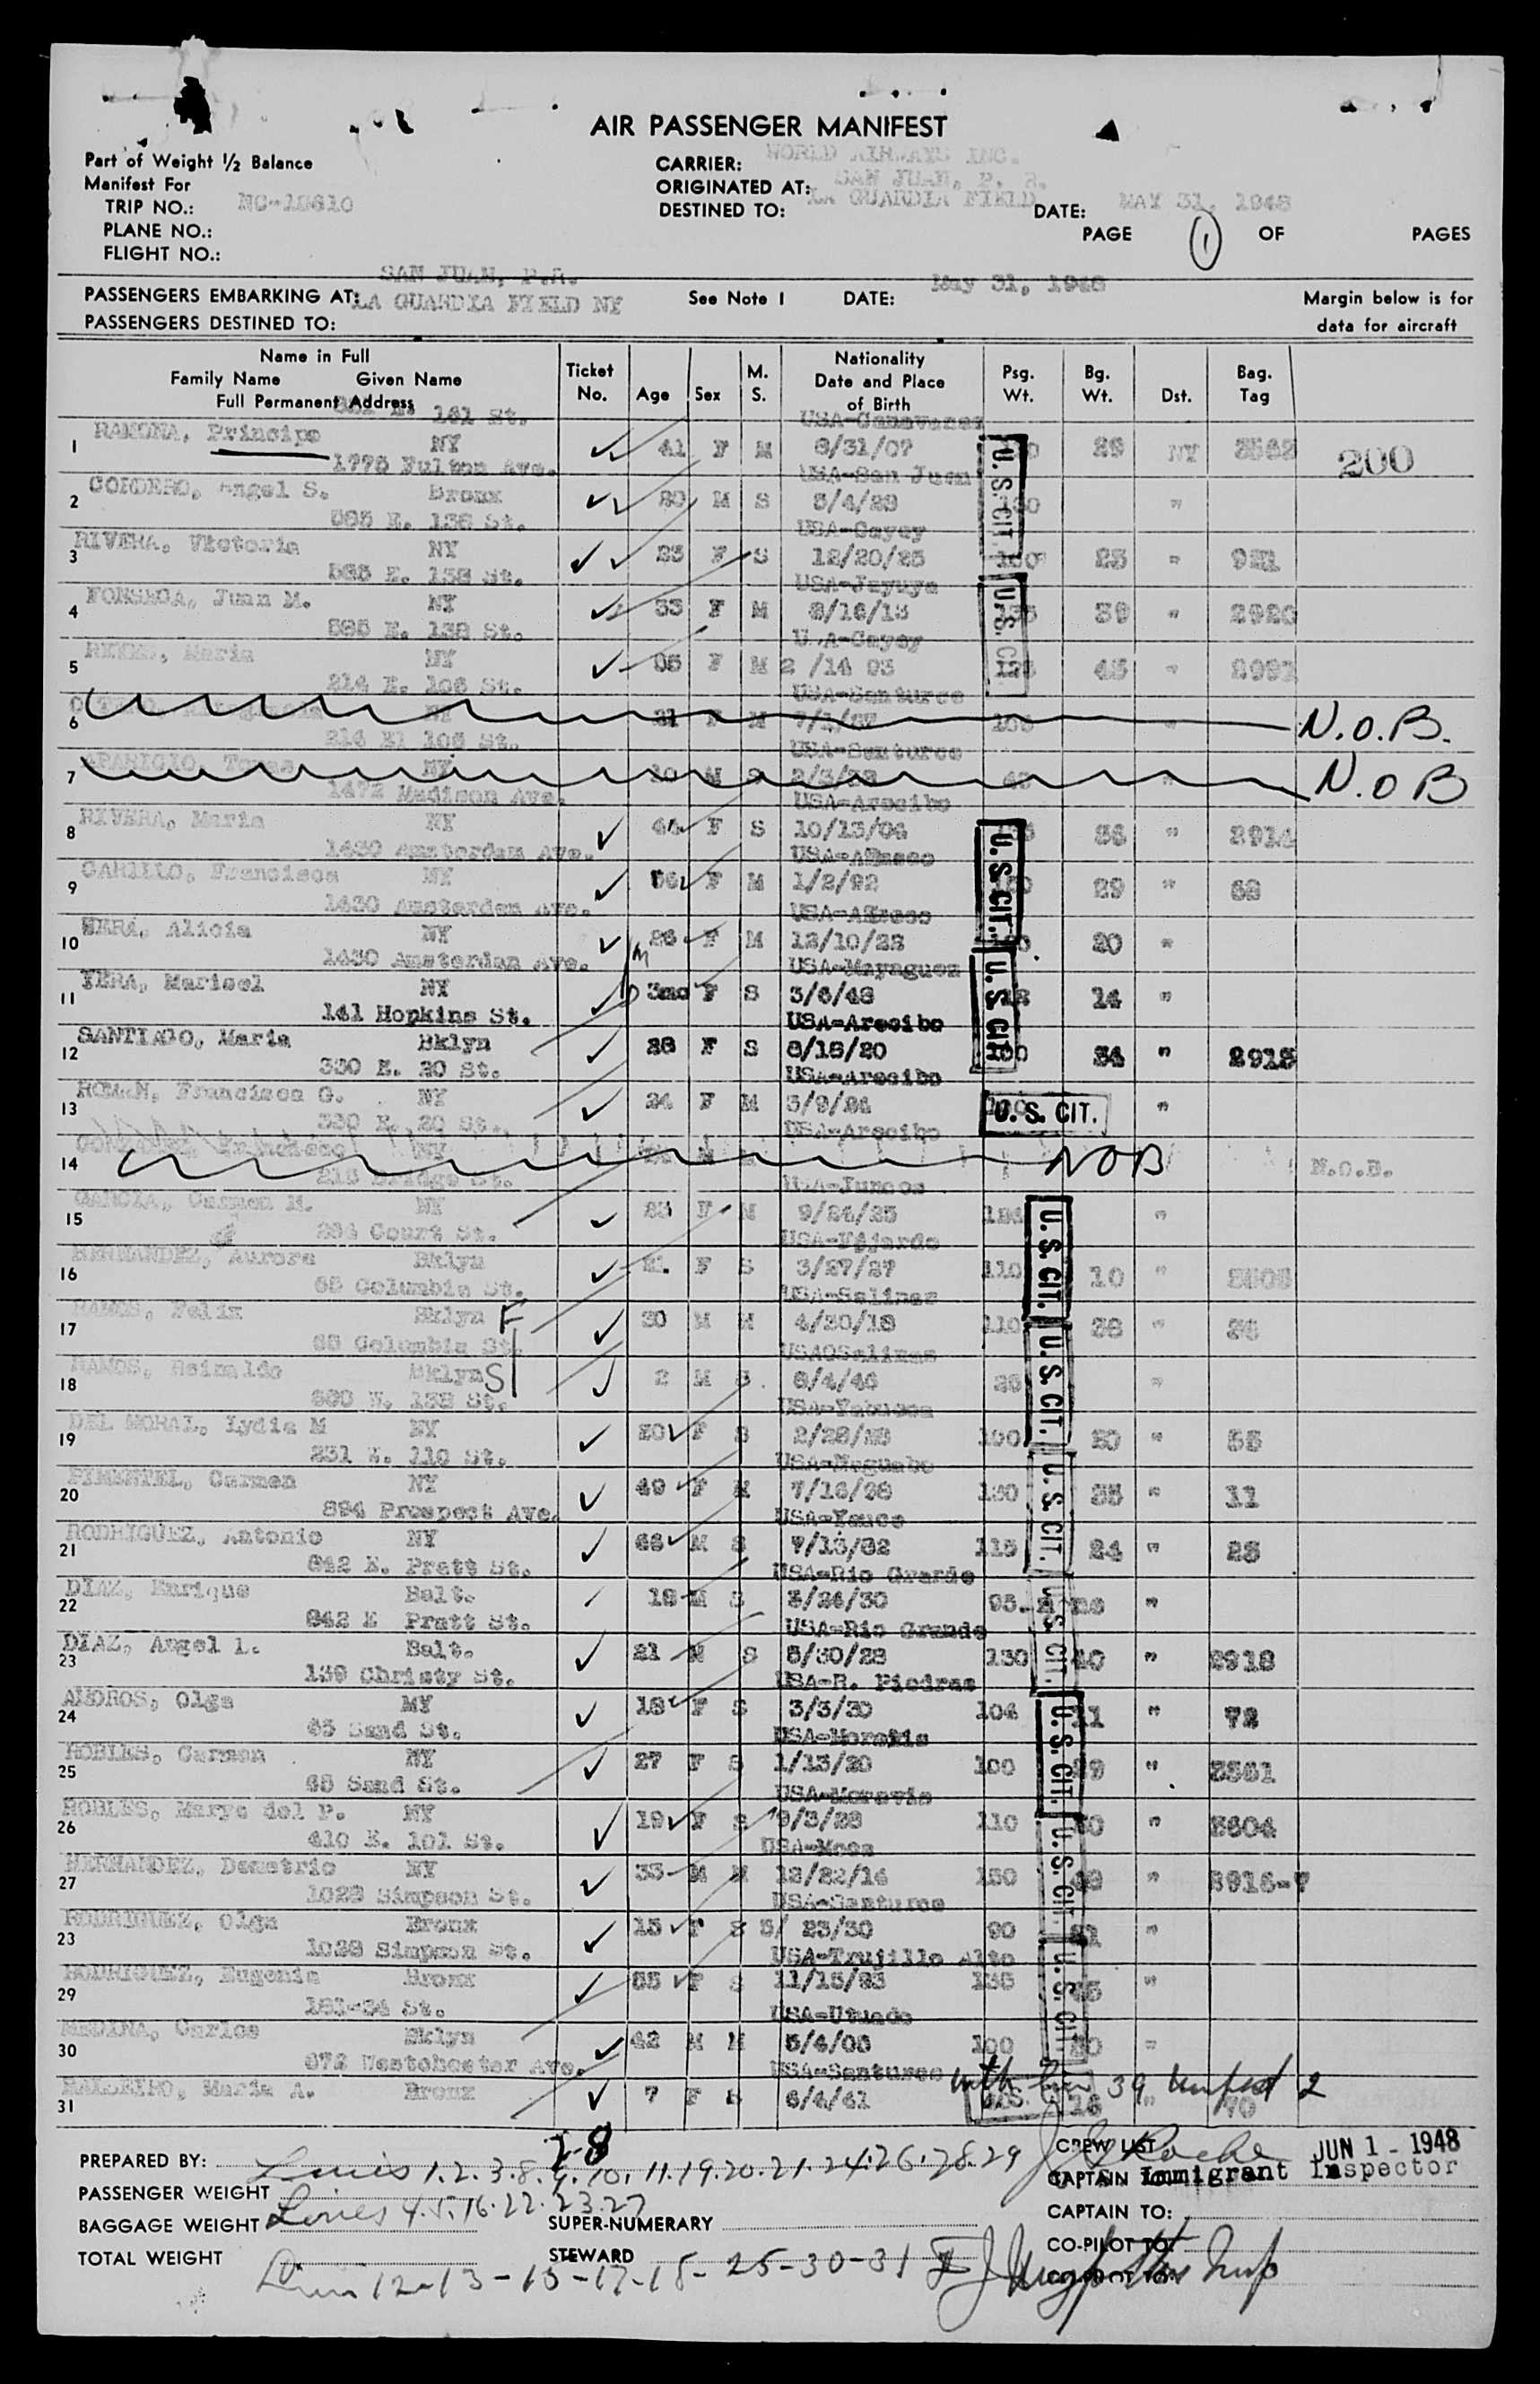 AIR PASSENGER MANIFEST
Part of Weight ½ Balance
Manifest For
TRIP NO.: NC-18610
PLANE NO.:
FLIGHT NO.:
CARRIER: WORLD AIRWAYS INC.
ORIGINATED AT: SAN JUAN, P. R.
DESTINED TO: LA GUARDIA FIELD
DATE: MAY 31, 1948
PAGE 1 OF PAGES
PASSENGERS EMBARKING AT: SAN JUAN, P.R.
PASSENGERS DESTINED TO: LA GUARDIA FIELD NY
See Note 1 DATE: May 31, 1948
Margin below is for
data for aircraft
Name in Full
Family Name Given Name
Full Permanent Address
Ticket No. Age Sex M. S. Nationality Date and Place of Birth Psg. Wt. Bg. Wt. Dst. Bag. Tag
161 St. USA-Canovanas
1 RAMONA, Principe NY 41 F M 8/31/07 29 NY 3562 200
1775 Fulton Ave. USA-San Juan
2 CORDERO, Angel S. Bronx 20 M S 5/4/28 130 "
565 E. 138 St. USA-Cayey
3 RIVERA, Victoria NY 23 F S 12/20/25 100 25 " 921
565 E. 138 St. USA-Jayuya
4 FONSECA, Juan M. NY 33 F M 8/16/15 39 " 2920
565 E. 138 St. USA-Cayey
5 REYES, Maria NY 55 F M 2 /14 93 45 "
214 E. 106 St. USA-Santurce
6 NY 21 F M N.O.B.
214 E1 106 St. USA-Santurce
7 APARICIO, Tomas NY 10 M S 2/3/38 N.O B
1472 Madison Ave. USA-Arecibo
8 RIVERA, Maria NY 44 F S 10/13/04 36 " 2914
1430 Amsterdam Ave. USA-Añasco
9 CARILLO, Francisca NY 56 F M 1/2/92 29 " 68
1430 Amsterdam Ave. USA-Añasco
10 VERA, Alicia NY 26 F M 12/10/22 20 "
1430 Amsterdam Ave. USA-Mayaguez
11 VERA, Marisel NY 3mo F S 3/6/48 12 14 "
141 Hopkins St. USA-Arecibo
12 SANTIAGO, Maria Bklyn 28 F S 8/18/20 34 " 2915
330 E. 20 St. USA-Arecibo
13 ROMAN, Francisca G. NY 24 F M 3/9/24 "
330 E. 20 St. USA-Arecibo
14 NY NOB N.O.B.
215 Bridge St. USA-Juncos
15 GARCIA, Carmen M. NY F M 9/24/25 "
Court St. USA-Fajardo
16 HERNANDEZ, Aurora Bklyn 21 F S 3/27/27 110 10 "
65 Columbia St. USA-Salinas
17 RAMOS, Felix Bklyn F 30 M M 4/30/18 110 38 "
65 Columbia St. USAOSalinas
18 RAMOS, Reinaldo Bklyn S 2 M S 6/4/46 "
600 W. 138 St. USA-Yabucoa
19 DEL MORAL, Lydia M NY 20 F S 2/28/28 100 30 " 55
231 E. 110 St. USA-Naguabo
20 PIMENTEL, Carmen NY 49 F M 7/16/98 130 35 " 11
894 Prospect Ave. USA-Yauco
21 RODRIGUEZ, Antonio NY 66 M S 7/13/82 115 24 " 25
842 E. Pratt St. USA-Rio Grande
22 DIAZ, Enrique Balt. 18 M S 3/24/30 95 "
842 E Pratt St. USA-Rio Grande
23 DIAZ, Angel L. Balt. 21 M S 5/30/28 130 40 " 2918
139 Christy St. USA-R. Piedras
24 AMOROS, Olga MY 18 F S 3/3/30 104 " 72
65 Sand St. USA-Morovis
25 ROBLES, Carmen NY 27 F S 1/13/20 100 " 3561
65 Sand St. USA-Morovis
26 ROBLES, Marya del P. NY 19 F S 9/3/28 110 " 3604
410 E. 101 St. USA-Moca
27 HERNANDEZ, Demetrio NY 33 M M 12/22/14 150 "
1028 Simpson St. USA-Santurce
23 RODRIGUEZ, Olga Bronx 15 F S 5/ 23/30 90 "
1028 Simpson St. USA-Trujillo Alto
29 RODRIGUEZ, Eugenia Bronx 55 F S 11/15/93 "
181-34 St. USA-Utuado
30 MEDINA, Carlos Bklyn 42 M M 5/4/06 100 "
872 Westchester Ave. USA-Santurce
31 Maria A. Bronx 7 F S 6/4/41 " 70
U. S. CIT.
U. S. CIT.
U. S. CIT.
U. S. CIT.
U. S. CIT.
U. S. CIT.
U. S. CIT.
U. S. CIT.
U. S. CIT.
U. S. CIT.
U. S. CIT.
U. S. CIT.
with line 39 Manifest 2
7-8
PREPARED BY: Lines 1.2.3.8.9.10.11.19.20.21.24.26.28.29
PASSENGER WEIGHT
BAGGAGE WEIGHT Lines 4.5.16.22.23.27
TOTAL WEIGHT
12-13-15-17-18-25-30-31
SUPER-NUMERARY
STEWARD
CREW LIST Roche JUN 1 - 1948
CAPTAIN Immigrant Inspector
CAPTAIN TO:
CO-PILOT TO:
Insp